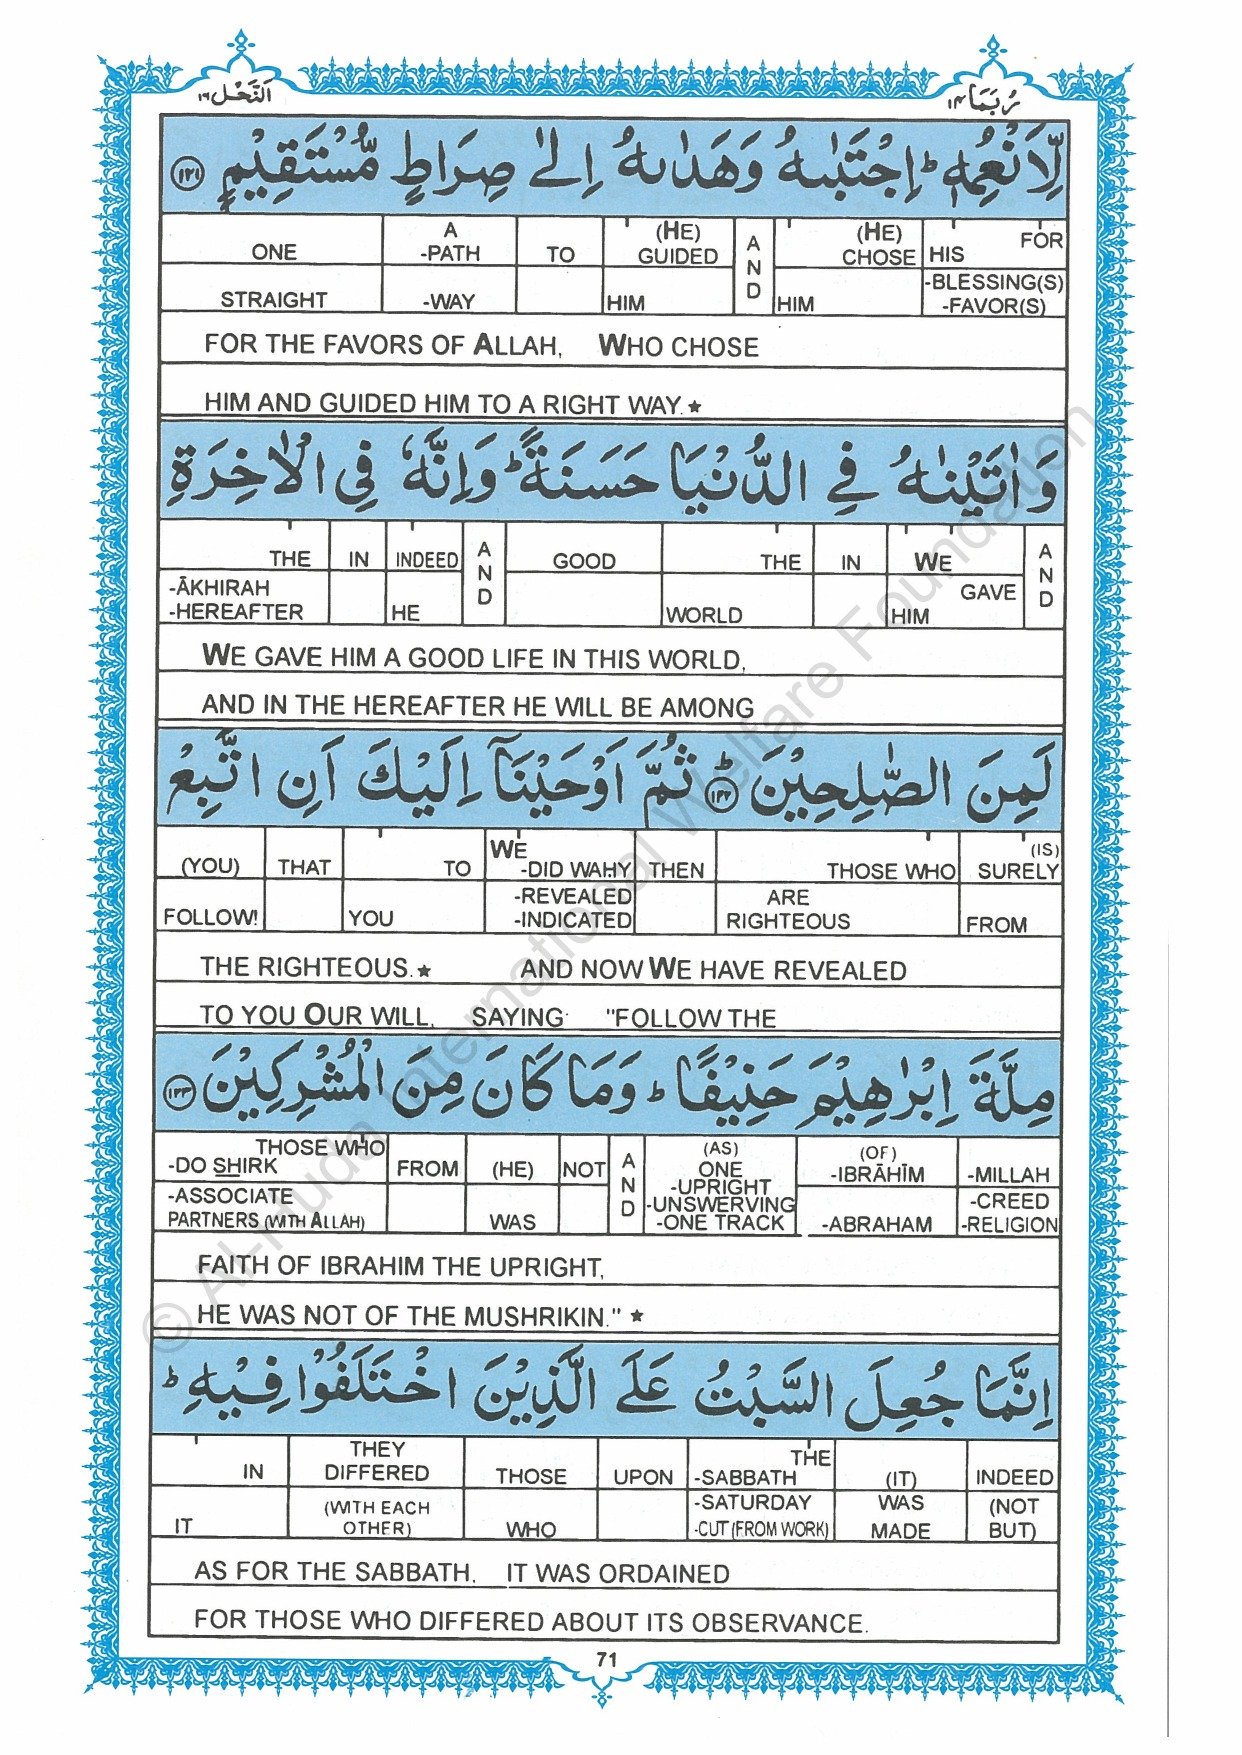 النَّحْل ١٦
رُبَمَا ١٤
لِّاَنْعُمِهٖ ؕ اِجْتَبٰىهُ وَهَدٰىهُ اِلٰى صِرَاطٍ مُّسْتَقِيْمٍ ١٢١
ONE A -PATH TO (HE) GUIDED AND (HE) CHOSE HIS FOR
STRAIGHT -WAY HIM HIM -BLESSING(S) -FAVOR(S)
FOR THE FAVORS OF ALLAH, WHO CHOSE
HIM AND GUIDED HIM TO A RIGHT WAY.★
وَاٰتَيْنٰهُ فِي الدُّنْيَا حَسَنَةً ؕ وَاِنَّهٗ فِي الْاٰخِرَةِ
THE IN INDEED AND GOOD THE IN WE AND
-ĀKHIRAH -HEREAFTER HE WORLD GAVE HIM
WE GAVE HIM A GOOD LIFE IN THIS WORLD,
AND IN THE HEREAFTER HE WILL BE AMONG
لَمِنَ الصّٰلِحِيْنَ ؕ ١٢٢ ثُمَّ اَوْحَيْنَاۤ اِلَيْكَ اَنِ اتَّبِعْ
(YOU) THAT TO WE -DID WAHY THEN THOSE WHO (IS) SURELY
FOLLOW! YOU -REVEALED -INDICATED ARE RIGHTEOUS FROM
THE RIGHTEOUS.★ AND NOW WE HAVE REVEALED
TO YOU OUR WILL, SAYING: "FOLLOW THE
مِلَّةَ اِبْرٰهِيْمَ حَنِيْفًا ؕ وَمَا كَانَ مِنَ الْمُشْرِكِيْنَ ١٢٣
THOSE WHO -DO SHIRK FROM (HE) NOT AND (AS) ONE -UPRIGHT (OF) -IBRĀHĪM -MILLAH
-ASSOCIATE PARTNERS (WITH ALLAH) WAS -UNSWERVING -ONE TRACK -ABRAHAM -CREED -RELIGION
FAITH OF IBRAHIM THE UPRIGHT,
HE WAS NOT OF THE MUSHRIKIN." ★
اِنَّمَا جُعِلَ السَّبْتُ عَلَى الَّذِيْنَ اخْتَلَفُوْا فِيْهِ ؕ
IN THEY DIFFERED THOSE UPON THE -SABBATH (IT) INDEED
IT (WITH EACH OTHER) WHO -SATURDAY -CUT (FROM WORK) WAS MADE (NOT BUT)
AS FOR THE SABBATH, IT WAS ORDAINED
FOR THOSE WHO DIFFERED ABOUT ITS OBSERVANCE.
71
© Al-Huda International Welfare Foundation